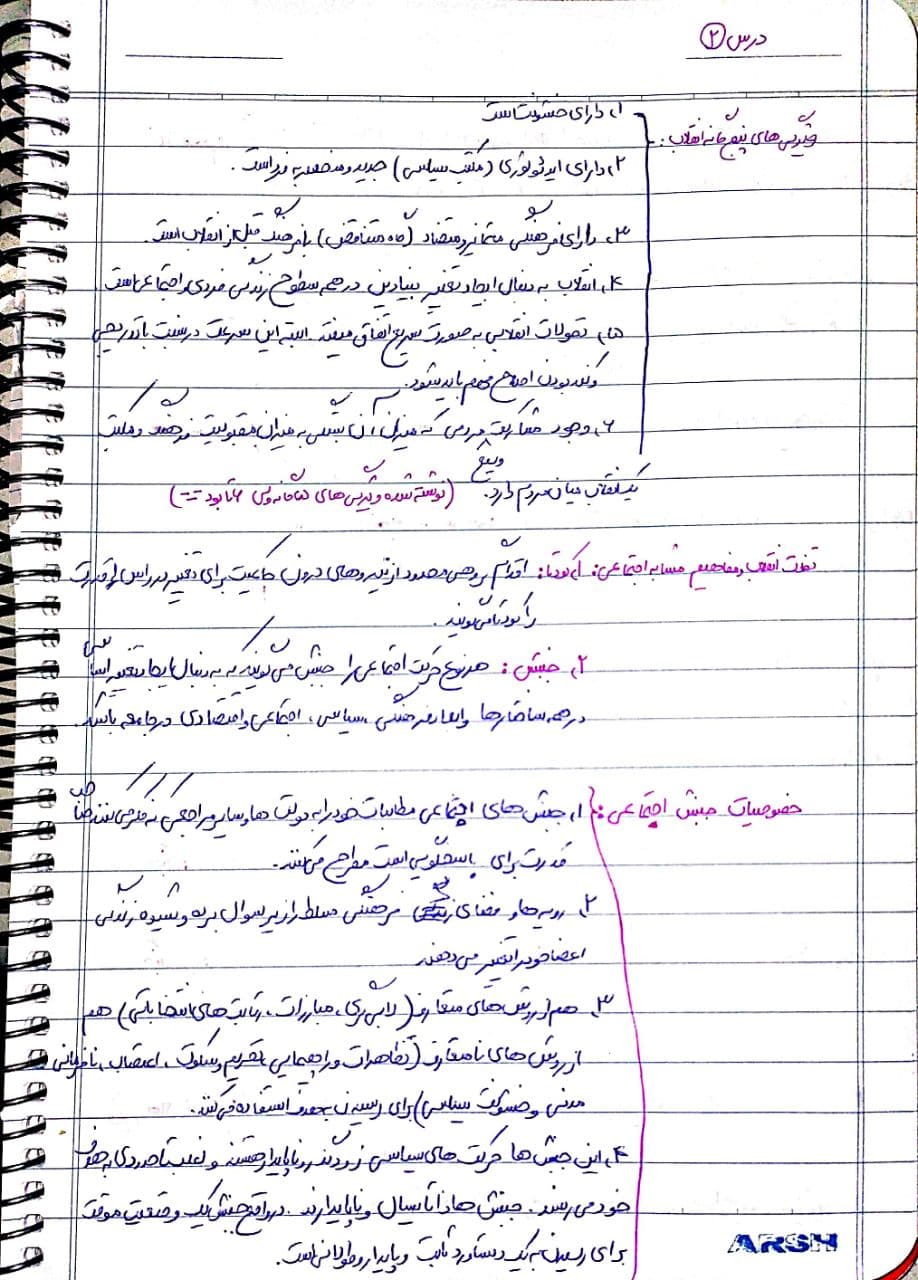 درس ②
ویژگی های پنج گانه انقلاب:
۱، دارای خشونت است
۲، دارای ایدئولوژی (مکتب سیاسی) جدید و منحصر به فرد است.
۳، دارای فرهنگی متمایز و متضاد (گاه متناقض) با فرهنگ قبل از انقلاب است.
۴، انقلاب به دنبال ایجاد تغییر بنیادین در همه سطوح زندگی فردی و اجتماعی است
۵، تحولات انقلابی به صورت سریع اتفاق میفتد البته این سرعت در نسبت با تدریجی
و کند بودن اصلاح فهم باید شود.
۶، وجود مشارکت مردمی که میزان آن بستگی به میزان مقبولیت فرهنگ و مکتب
یک انقلاب میان مردم دارد. وسیع
(نوشته شده ویژگی های پنجگانه ولی ۶ تا بود)
تفاوت انقلاب و مفاهیم مشابه اجتماعی: ۱، کودتا: اقدام گروهی محدود از نیروهای درون حاکمیت برای تغییر در راس قدرت
را کودتا می گویند.
۲، جنبش: هر نوع حرکت اجتماعی را جنبش می گویند که به دنبال ایجاد تغییر اساسی
در همه ساختارها و ابعاد فرهنگی، سیاسی، اجتماعی و اقتصادی در جامعه باشد.
خصوصیات جنبش اجتماعی: ۱، جنبش های اجتماعی مطالبات خود را به دولت ها و سایر مراجعی که فکر می کنند صاحب
قدرت برای پاسخگویی است مطرح می کنند.
۲، رویه ها و فضای فرهنگی مسلط را زیر سوال برده و شیوه زندگی
اعضا خود را تغییر می دهند
۳، هم از روش های متعارف (لابی گری، مبارزات، رقابت های انتخاباتی) هم
از روش های نامتعارف (تظاهرات و راهپیمایی، تحریم و سکوت، اعتصاب، نافرمانی
مدنی و خشونت سیاسی) برای رسیدن به هدف استفاده می کنند.
۴، این جنبش ها حرکت های سیاسی زودگذر و ناپایدار هستند و اغلب تا حدودی به هدف
خود می رسند. جنبش ها ذاتا سیال و ناپایدارند. در واقع جنبش یک وضعیت موقت
برای رسیدن به یک دستاورد ثابت و پایدار و طولانی است.
ARSH